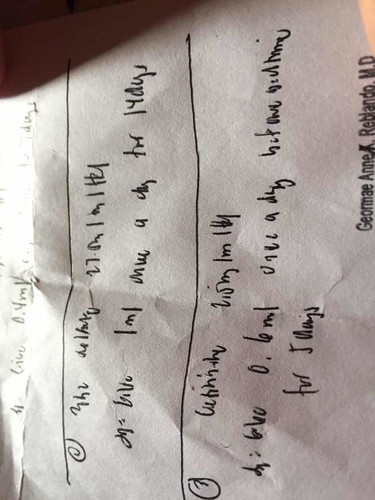 Sig: Give 0.4ml
days
② Zinc sulfate 27.5mg/ml #1
Sig: Give 1ml once a day for 14 days
③ Cetirizine 2.5mg/ml #1
Sig: Give 0.6ml once a day before bedtime
for 5 days
Geormae Anne X. Reblando, M.D